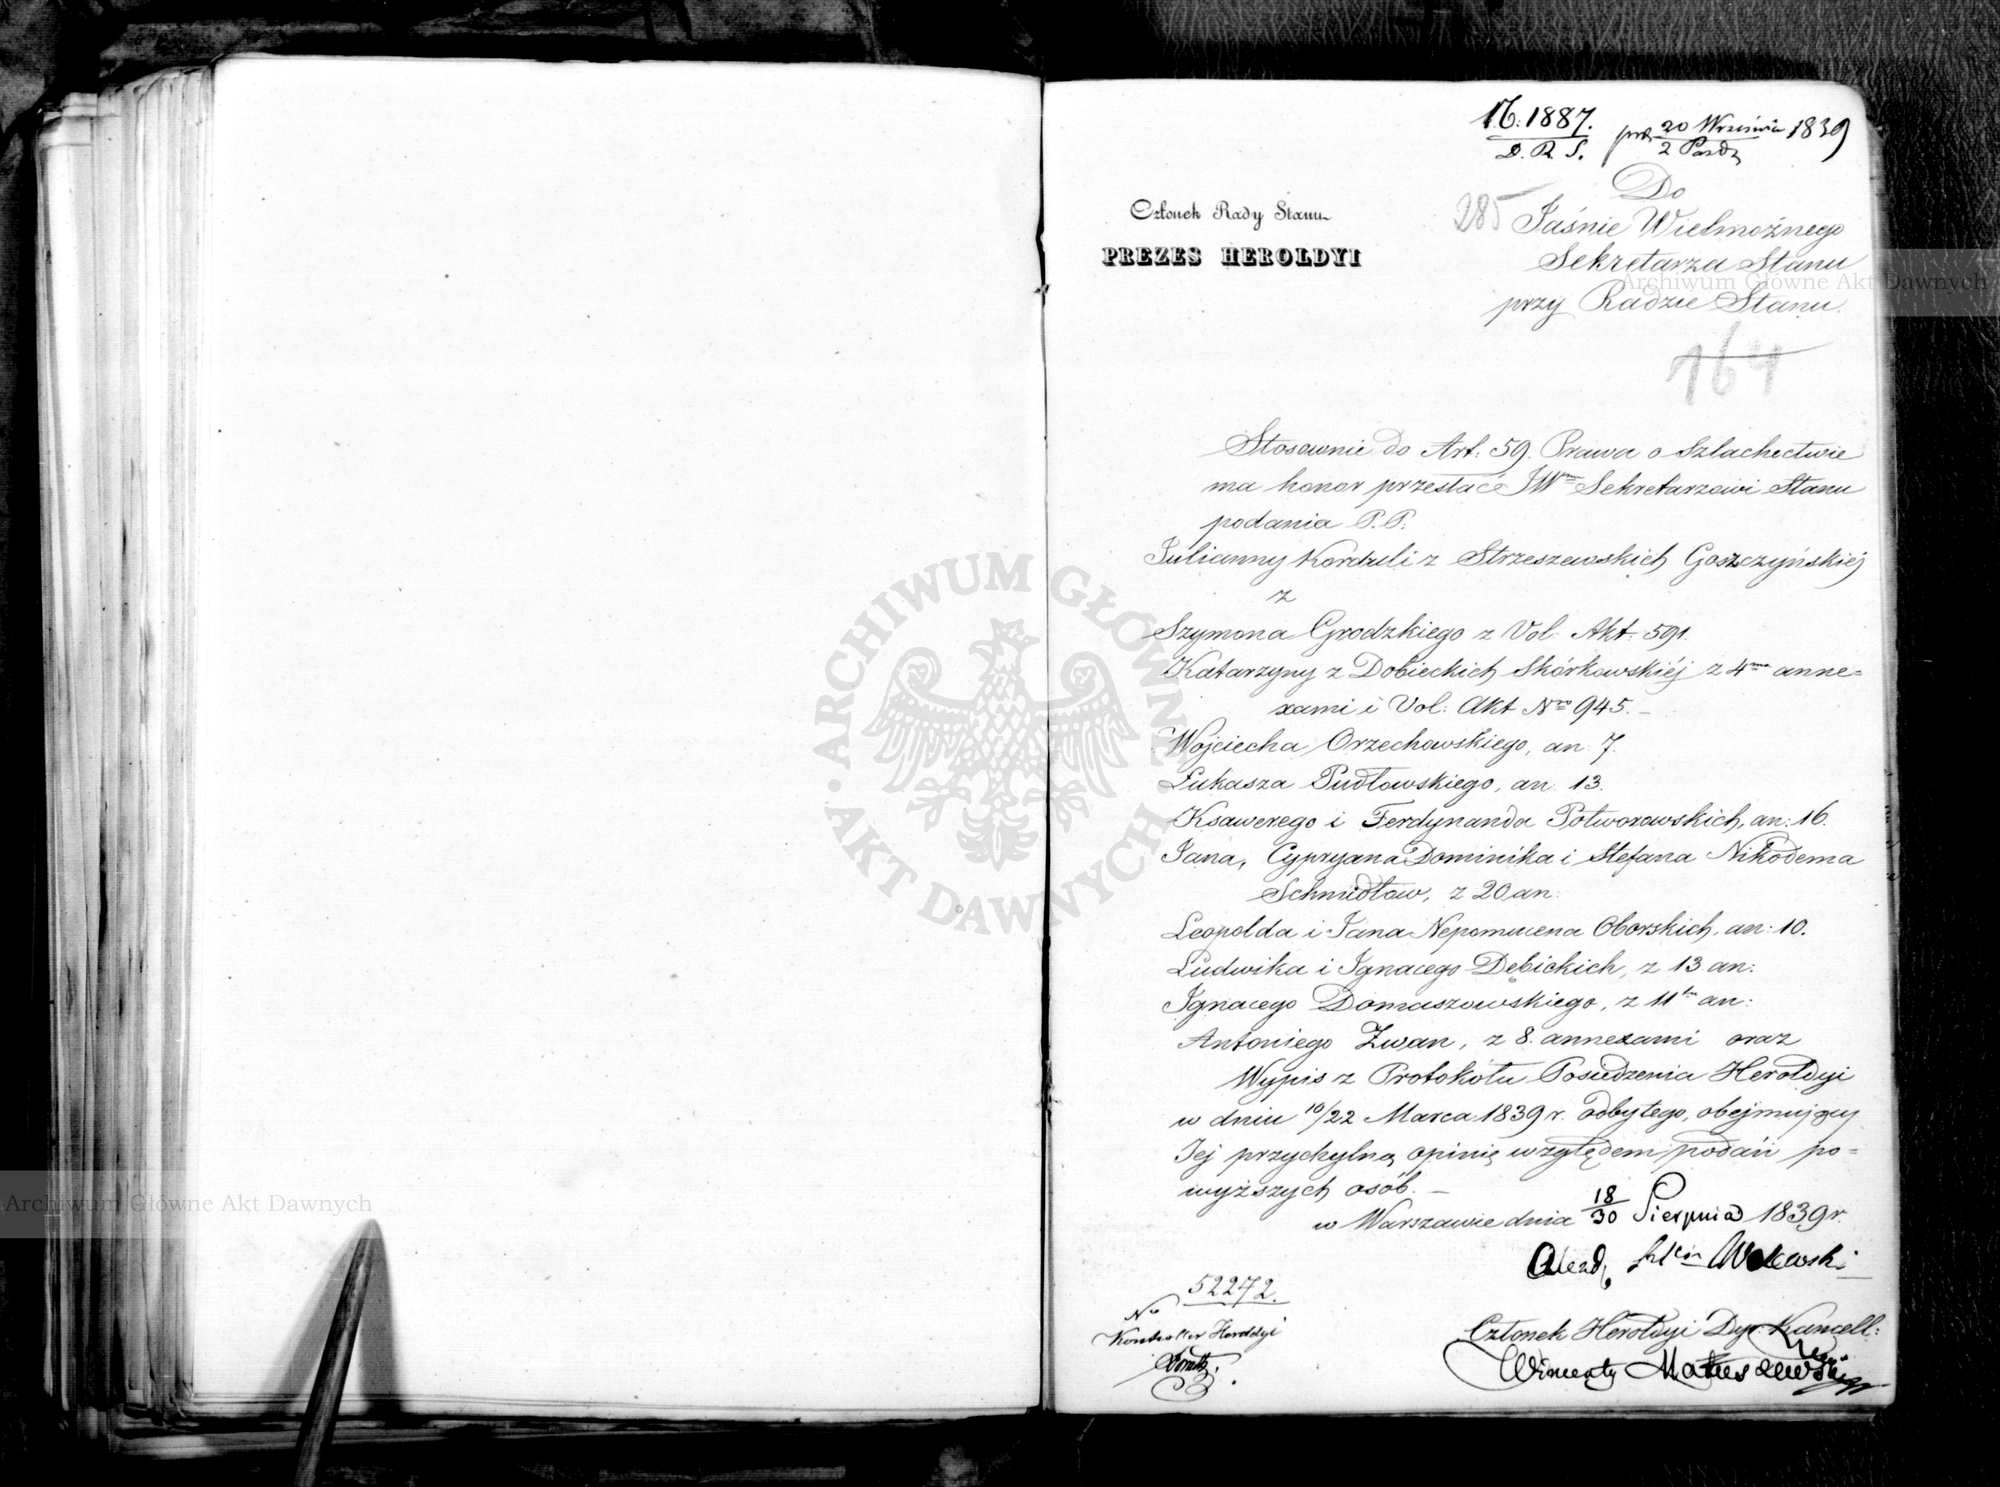 16. 1887.
D. R. S.
20 Września 1839
2 Paźdz
285
Członek Rady Stanu
PREZES HEROLDYI
Do
Jaśnie Wielmożnego
Sekretarza Stanu
przy Radzie Stanu.
164
Stosownie do Art: 59. Prawa o Szlachectwie
ma honor przesłać JW Sekretarzowi Stanu
podania P.P.
Julianny Korduli z Strzeszewskich Goszczyńskiej
z
Szymona Grodzkiego z Vol: Akt: 591.
Katarzyny z Dobieckich Skórkowskiéj z 4ma anne=
xami i Vol: Akt Nro 945. –
Wojciecha Orzechowskiego, an: 7.
Łukasza Pudłowskiego, an: 13.
Ksawerego i Ferdynanda Potworowskich, an: 16.
Jana, Cypryana Dominika i Stefana Nikodema
Schmidtow, z 20 an:
Leopolda i Jana Nepomucena Oborskich, an: 10.
Ludwika i Ignacego Dębickich, z 13 an:
Ignacego Domaszowskiego, z 11tu an:
Antoniego Zwan, z 8. annexami oraz
Wypis z Protokółu Posiedzenia Heroldyi
w dniu 10/22 Marca 1839 r. odbytego, obejmujący
Jej przychylną opinię względem podań po=
wyższych osób. –
w Warszawie dnia 18/30 Sierpnia 1839 r.
Walewski
Członek Heroldyi Dyr: Kancell:
Wincenty Matuszewski
52272.
No
Kontroller Heroldyi
Archiwum Główne Akt Dawnych
Archiwum Główne Akt Dawnych
ARCHIWUM GŁÓWNE AKT DAWNYCH